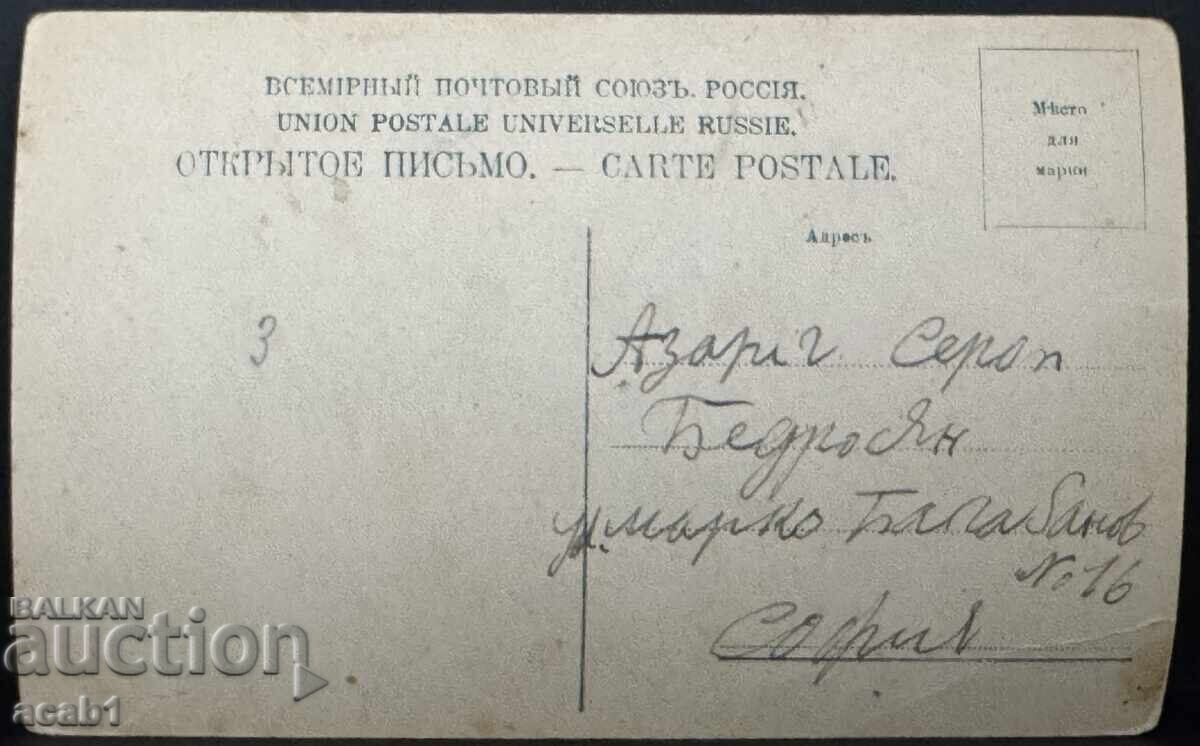 ВСЕМІРНЫЙ ПОЧТОВЫЙ СОЮЗЪ. РОССІЯ.
UNION POSTALE UNIVERSELLE RUSSIE.
ОТКРЫТОЕ ПИСЬМО. — CARTE POSTALE.
Мѣсто
для
марки
Адресъ
3
Азаріг Сероп
Бедросян
ул. марко Балабанов
№ 16
София
BALKAN
auction
acab1